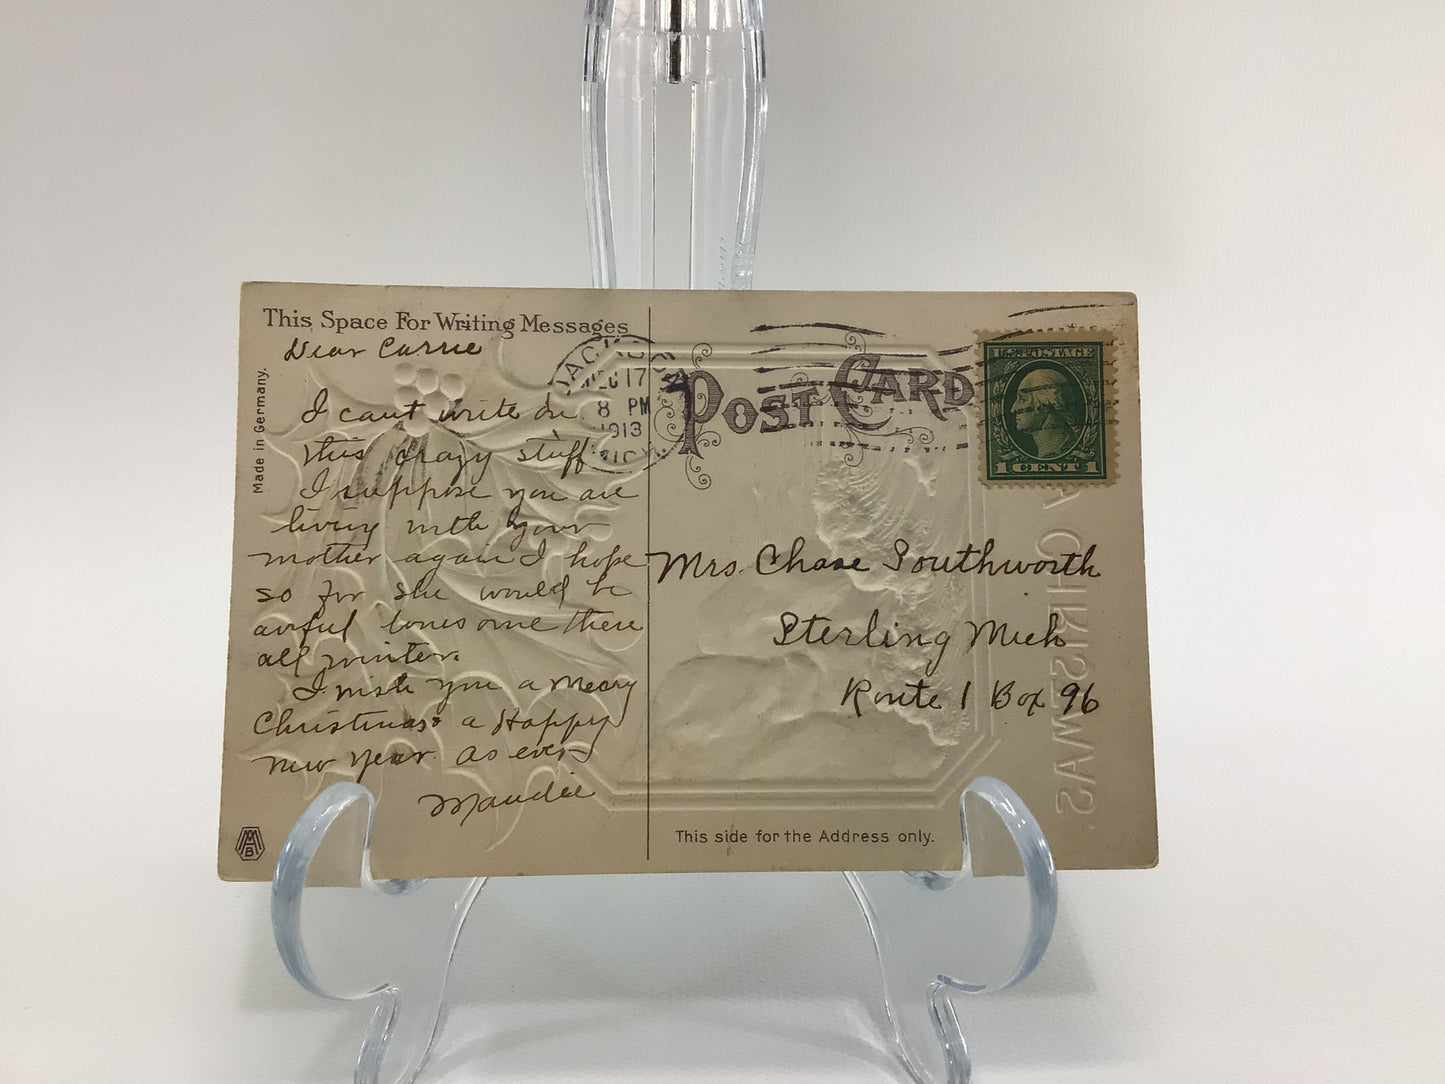 This Space For Writing Messages
Dear Carrie
I can't write on
this crazy stuff
I suppose you are
living with your
mother again I hope
so for she would be
awful lonesome there
all winter.
I wish you a Merry
Christmas & a Happy
New Year as ever
Maudie
Made in Germany.
MAB
JACKSON
DEC 17
8 PM
1913
MICH.
POST CARD
U.S. POSTAGE
1 CENT 1
Mrs. Chase Southworth
Sterling Mich
Route 1 Box 96
This side for the Address only.
A CHRISTMAS